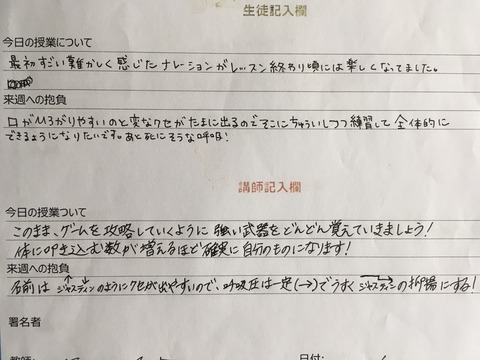 生徒記入欄
今日の授業について
最初すごい難かしく感じたナレーションがレッスン終わり頃には楽しくなってました。
来週への抱負
口がひろがりやすいのと変なクセがたまに出るのでそこにちゅういしつつ練習して全体的に
できるようになりたいです。あと死にそうな呼吸!
講師記入欄
今日の授業ついて
このまま、ゲームを攻略していくように強い武器をどんどん覚えていきましょう!
体に叩き込む数が増えるほど確実に自分のものになります!
来週への抱負
名前は ジャスティンのようにクセが出やすいので、呼吸圧は一定(→)でうすく ジャスティンの抑揚にする!
署名者
日付: